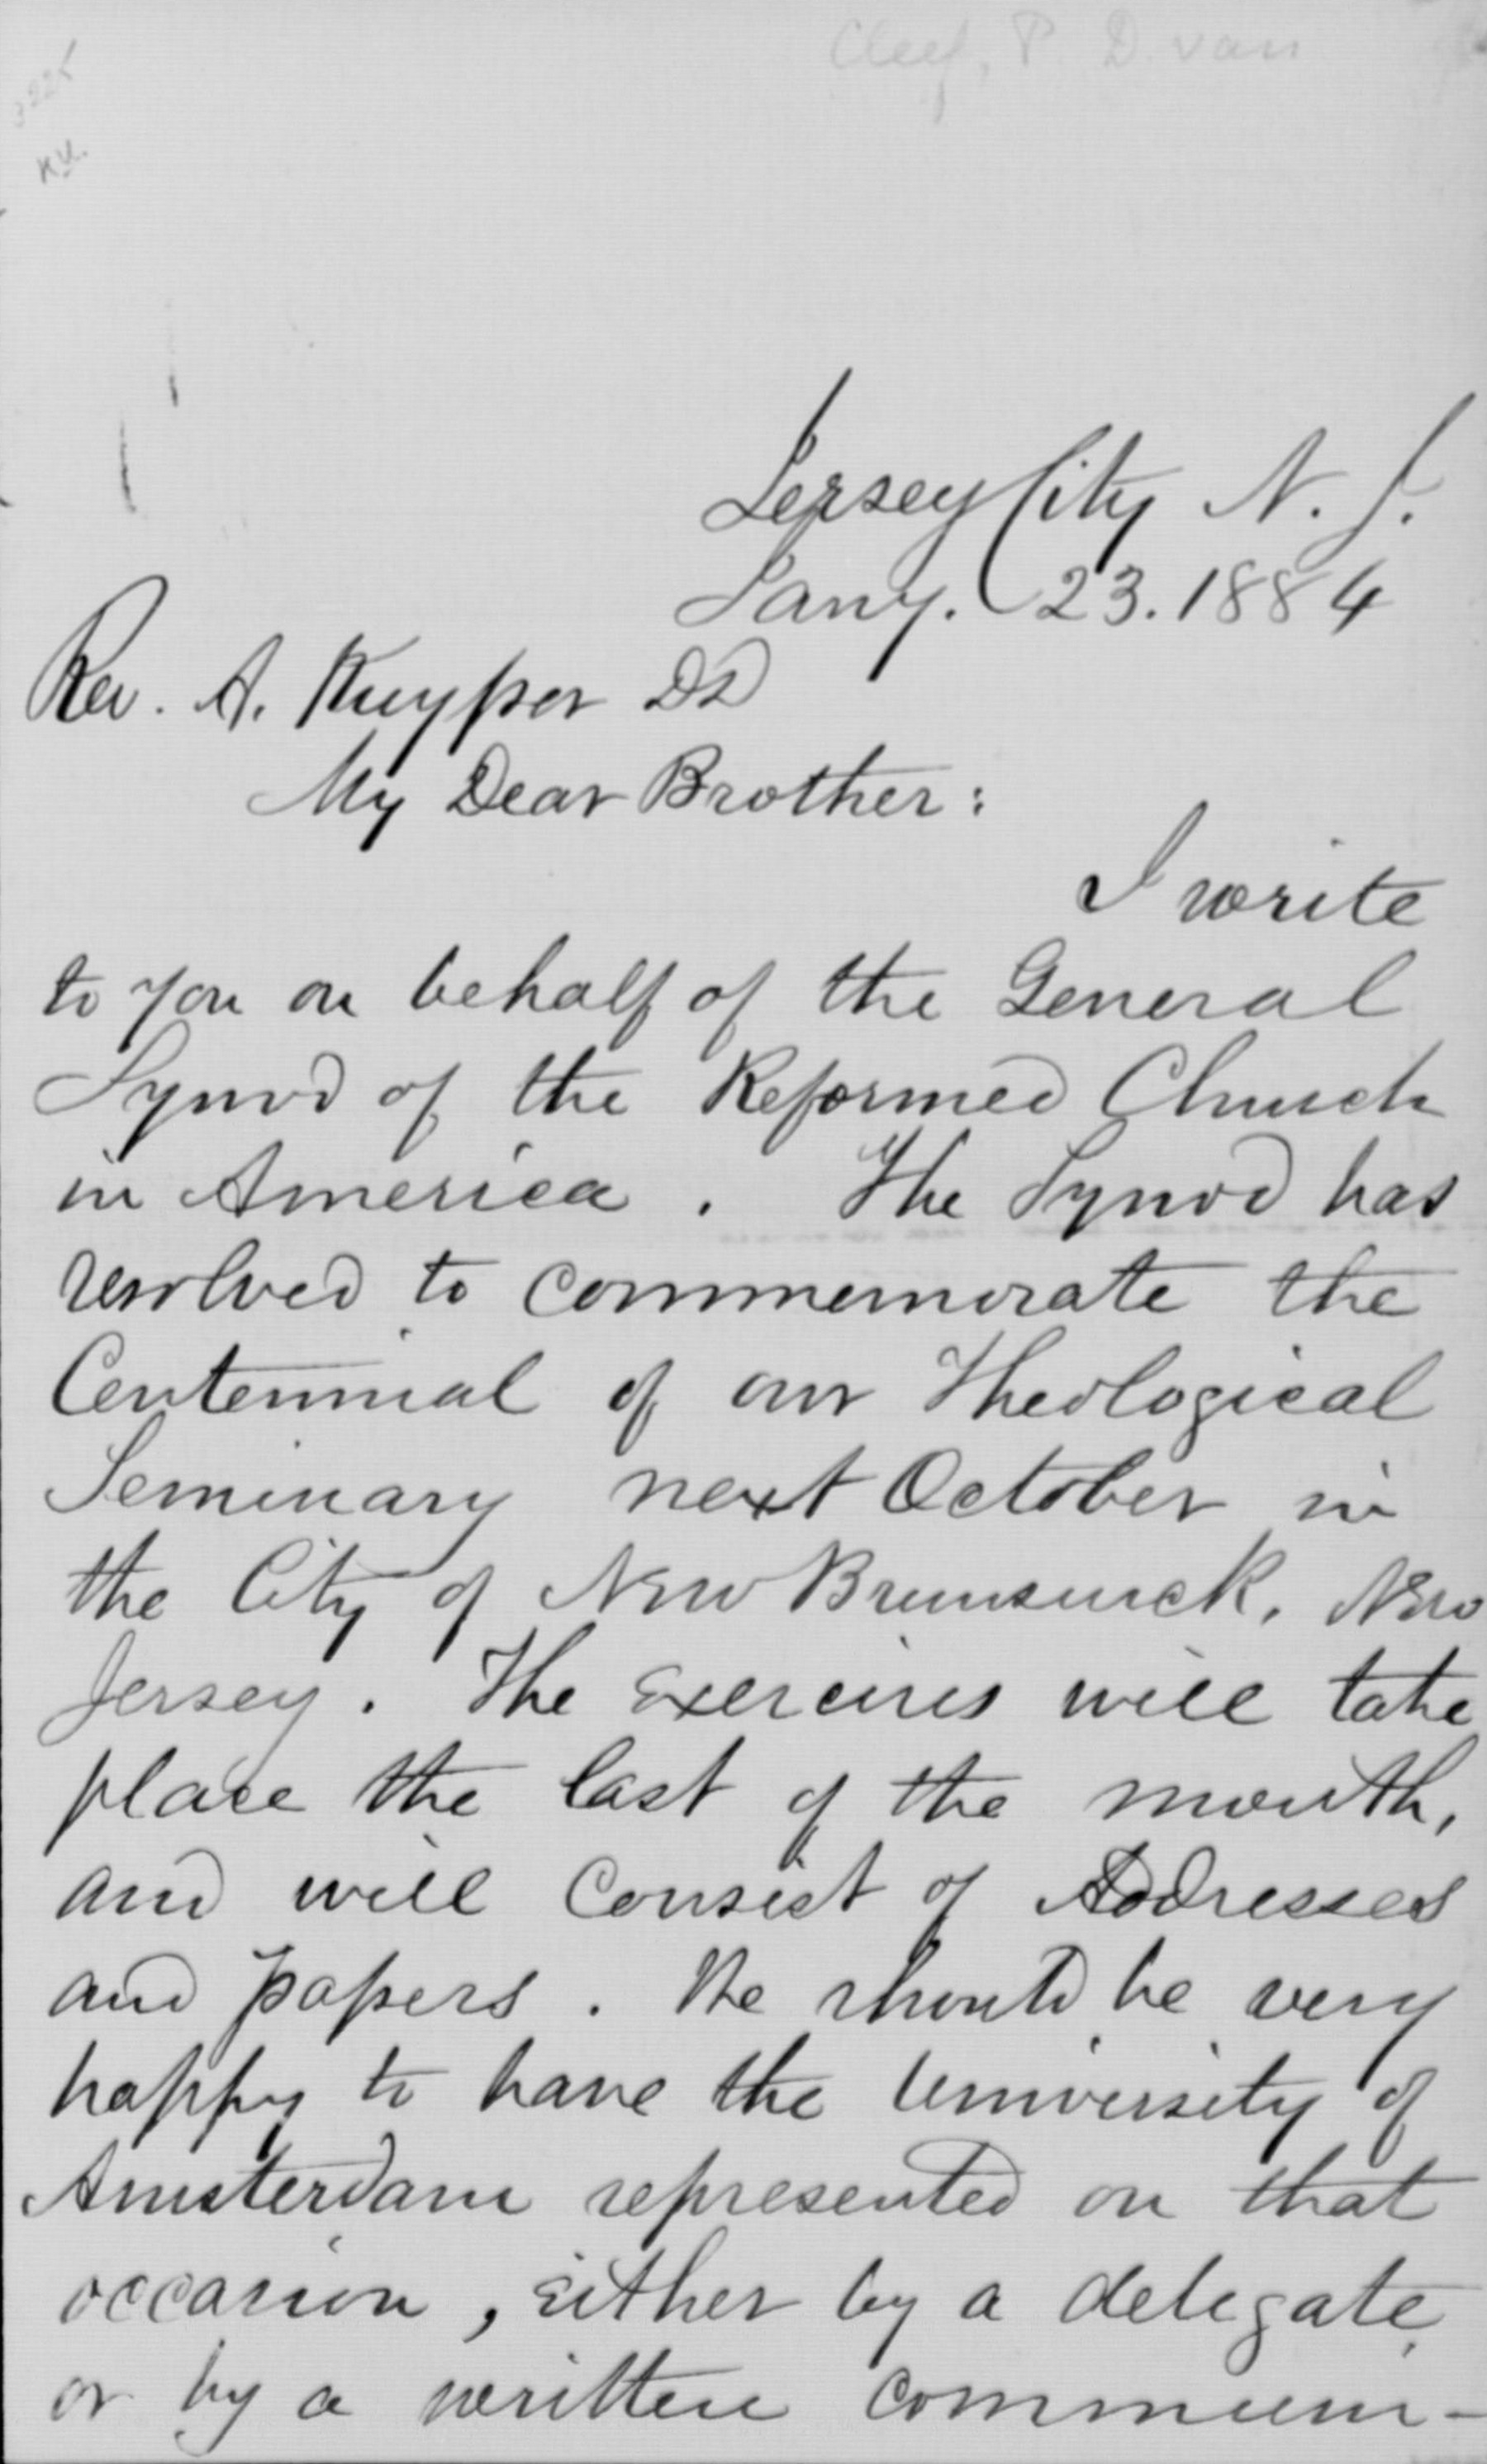 Cleef, P. D. van
3225
KU.
Jersey City N. J.
Jany. 23. 1884
Rev. A. Kuyper DD
My Dear Brother:
I write
to you on behalf of the General
Synod of the Reformed Church
in America. The Synod has
resolved to commemorate the
Centennial of our Theological
Seminary next October in
the City of New Brunswick, New
Jersey. The Exercises will take
place the last of the month,
and will consist of Addresses
and papers. We should be very
happy to have the University of
Amsterdam represented on that
occasion, either by a delegate
or by a written communi-